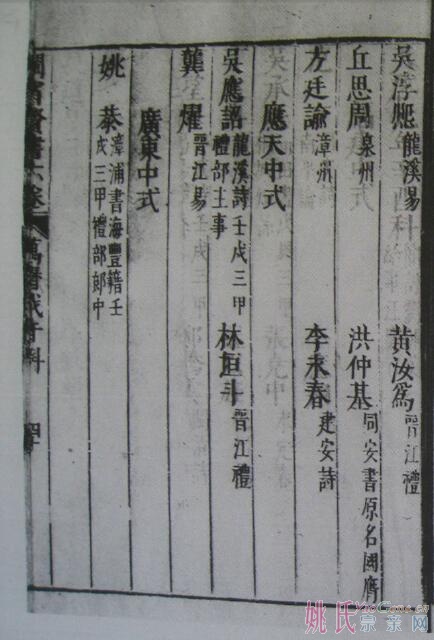 吳淳熈 龍溪易 黄汝爲 晉江禮
丘思周 泉州 洪仲基 同安書原名國膺
方廷諭 漳州 李永春 建安詩
應天中式
吳應詔 龍溪詩壬戌三甲禮部主事 林垣斗 晉江禮
龔燿 晉江易
廣東中式
姚恭 漳浦書海豐籍壬戌三甲禮部郎中
閩省賢書 萬曆戊午科
姚氏宗亲网